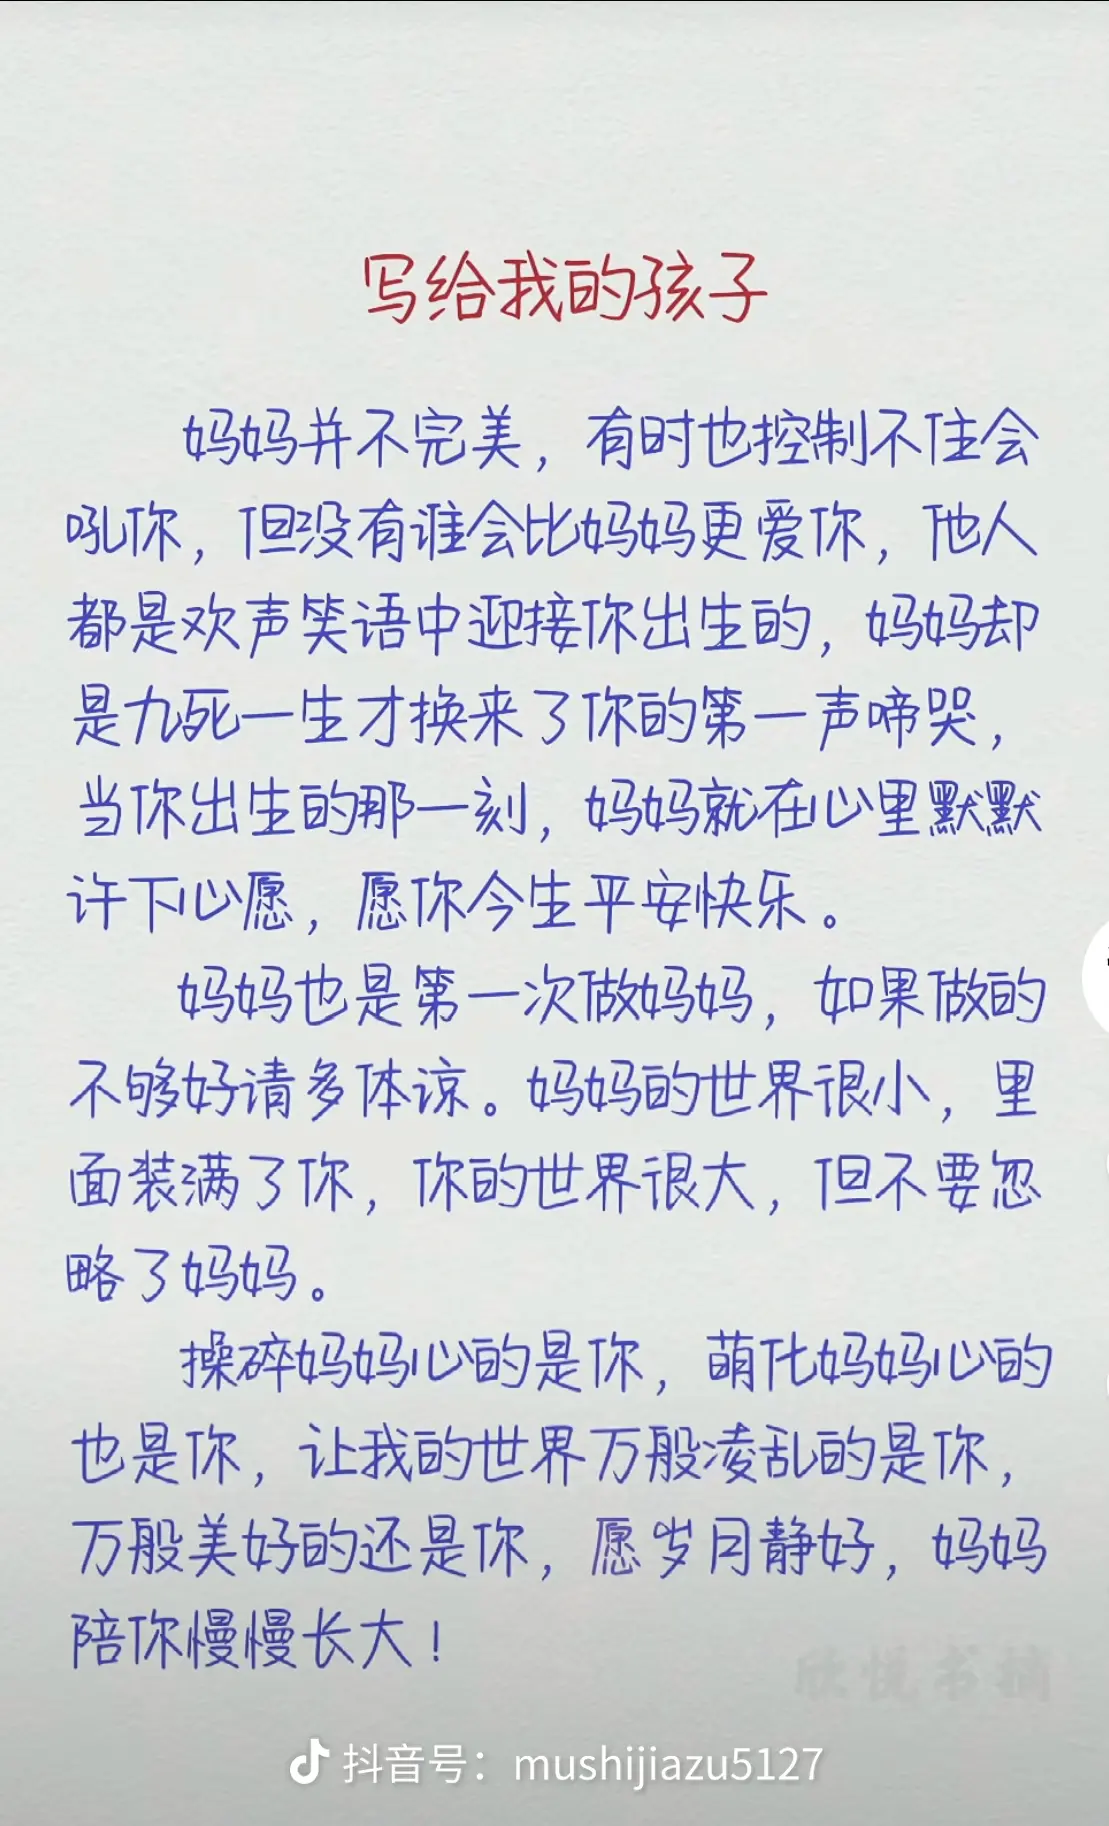 写给我的孩子
妈妈并不完美，有时也控制不住会
吼你，但没有谁会比妈妈更爱你，他人
都是欢声笑语中迎接你出生的，妈妈却
是九死一生才换来了你的第一声啼哭，
当你出生的那一刻，妈妈就在心里默默
许下心愿，愿你今生平安快乐。
妈妈也是第一次做妈妈，如果做的
不够好请多体谅。妈妈的世界很小，里
面装满了你，你的世界很大，但不要忽
略了妈妈。
操碎妈妈心的是你，萌化妈妈心的
也是你，让我的世界万般凌乱的是你，
万般美好的还是你，愿岁月静好，妈妈
陪你慢慢长大！
欣悦书摘
抖音号：mushijiazu5127